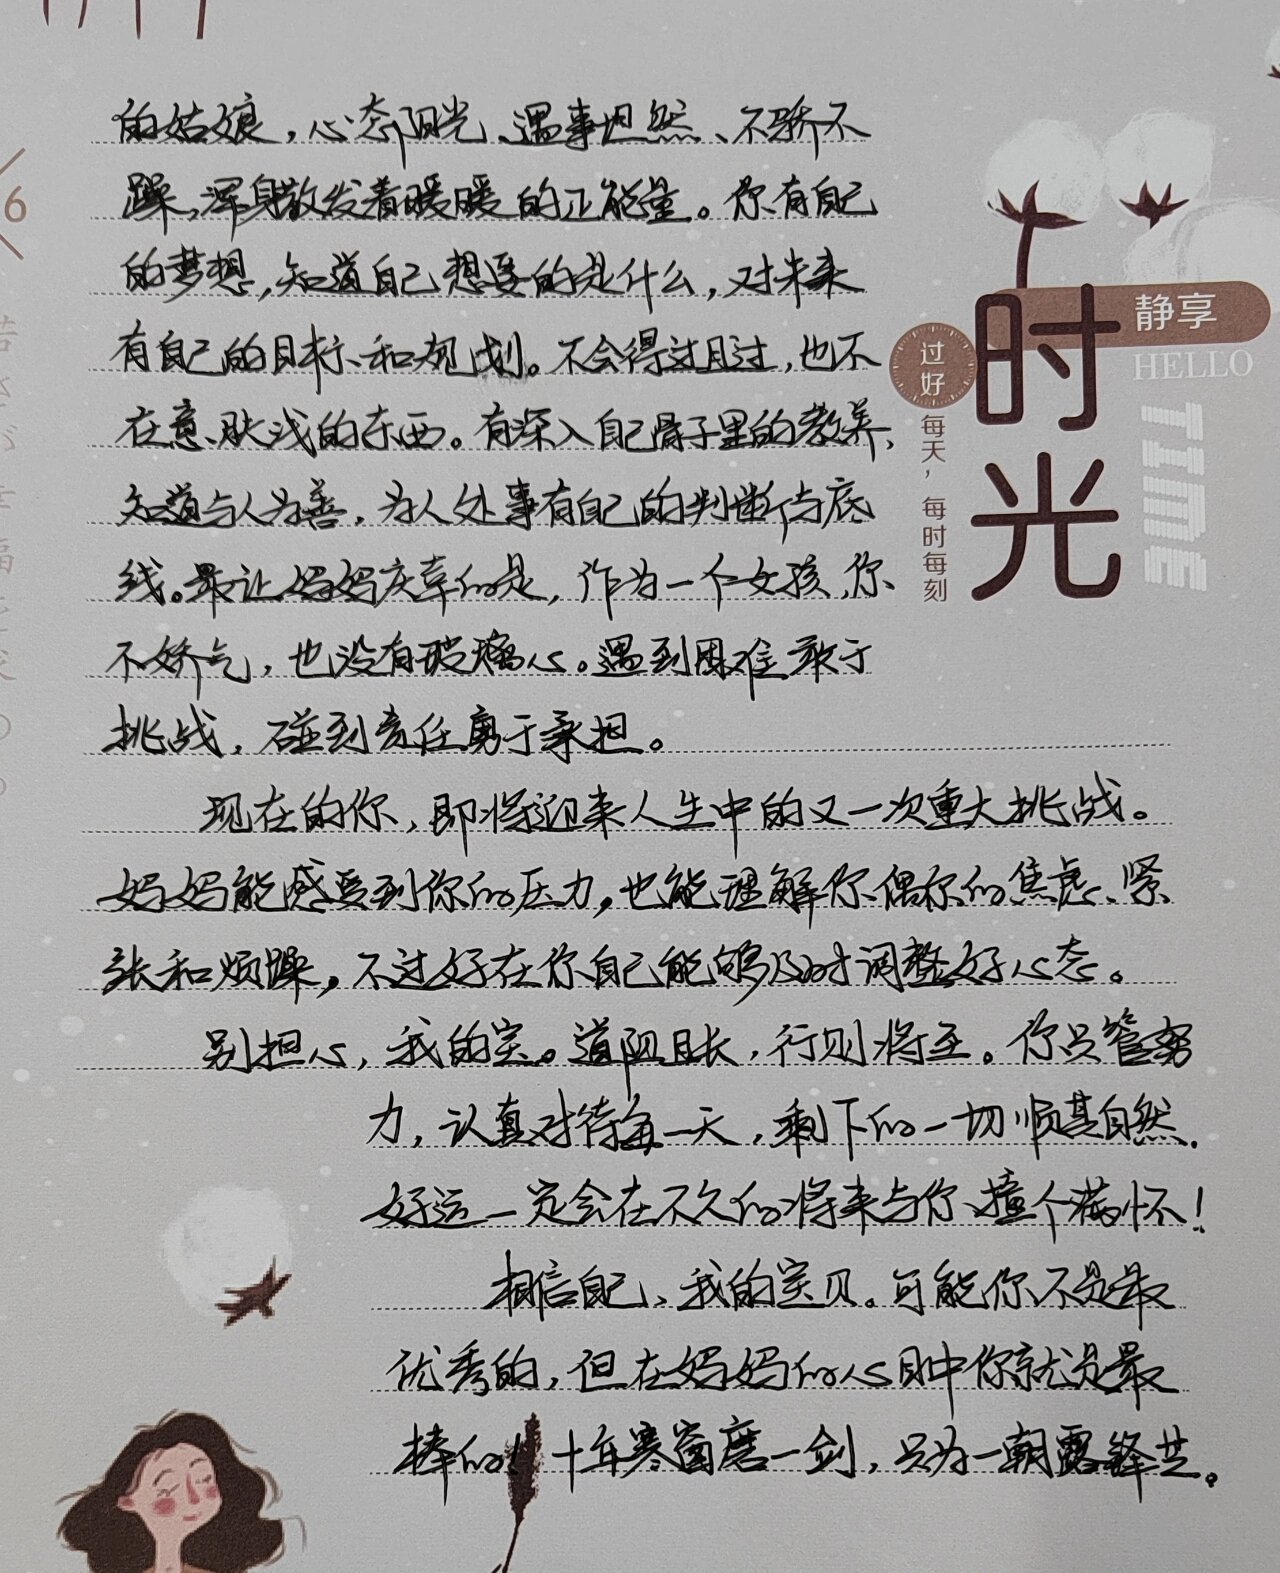 的姑娘，心态阳光、遇事坦然、不骄不
躁，浑身散发着暖暖的正能量。你有自己
的梦想，知道自己想要的是什么，对未来
有自己的目标和规划。不会得过且过，也不
在意肤浅的东西。有深入自己骨子里的教养，
知道与人为善，为人处事有自己的判断与底
线。最让妈妈庆幸的是，作为一个女孩，你
不娇气，也没有玻璃心。遇到困难敢于
挑战，碰到责任勇于承担。
现在的你，即将迎来人生中的又一次重大挑战。
妈妈能感受到你的压力，也能理解你偶尔的焦虑、紧
张和烦躁，不过好在你自己能够及时调整好心态。
别担心，我的宝。道阻且长，行则将至。你只管努
力，认真对待每一天，剩下的一切顺其自然.
好运一定会在不久的将来与你撞个满怀！
相信自己、我的宝贝。可能你不是最
优秀的，但在妈妈的心目中你就是最
棒的！十年寒窗磨一剑，只为一朝露锋芒。
静享
HELLO
时光
TIME
过好
每天，每时每刻
6